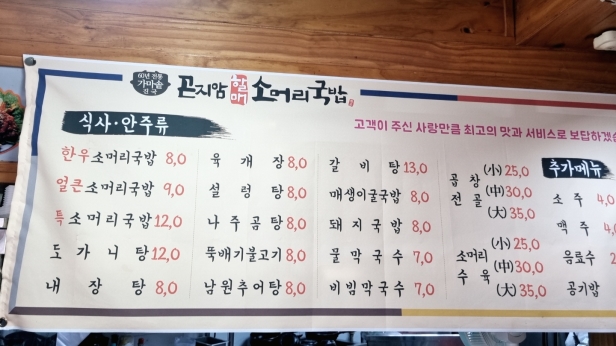 60년 전통
가마솥
진국
곤지암 할매 소머리국밥
고객이 주신 사랑만큼 최고의 맛과 서비스로 보답하겠습
식사·안주류
한우소머리국밥 8,0
얼큰소머리국밥 9,0
특소머리국밥 12,0
도가니탕 12,0
내장탕 8,0
육개장 8,0
설렁탕 8,0
나주곰탕 8,0
뚝배기불고기 8,0
남원추어탕 8,0
갈비탕 13,0
매생이굴국밥 8,0
돼지국밥 8,0
물막국수 7,0
비빔막국수 7,0
곱창전골
(小) 25,0
(中) 30,0
(大) 35,0
소머리수육
(小) 25,0
(中) 30,0
(大) 35,0
추가메뉴
소주 4,0
맥주 4,
음료수 2
공기밥